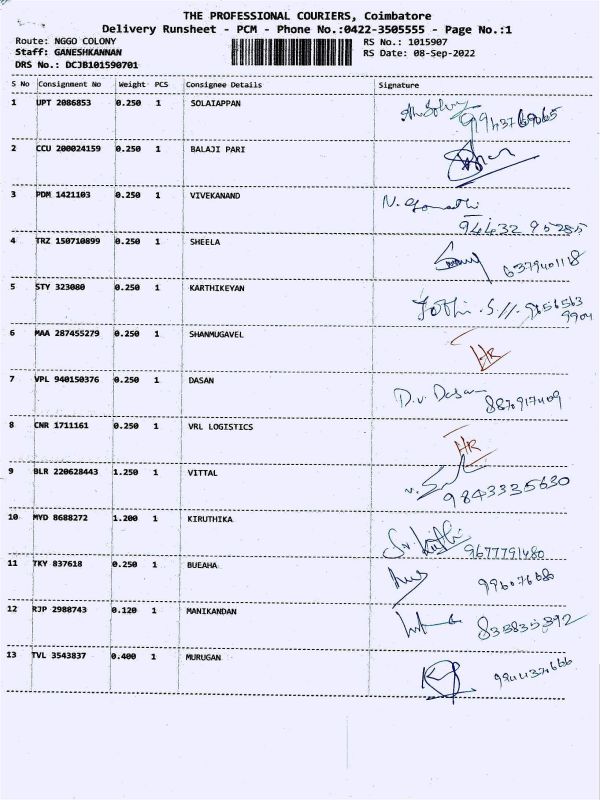 THE PROFESSIONAL COURIERS, Coimbatore
Delivery Runsheet - PCM - Phone No.:0422-3505555 - Page No.:1
Route: NGGO COLONY
RS No.: 1015907
Staff: GANESHKANNAN
RS Date: 08-Sep-2022
DRS No.: DCJB101590701
S No Consignment No Weight PCS Consignee Details Signature
1 UPT 2086853 0.250 1 SOLAIAPPAN
2 CCU 200024159 0.250 1 BALAJI PARI
3 PDM 1421103 0.250 1 VIVEKANAND
94432 95285
4 TRZ 150710899 0.250 1 SHEELA
6379401118
5 STY 323080 0.250 1 KARTHIKEYAN
Jothi . S //.
6 MAA 287455279 0.250 1 SHANMUGAVEL
HR
7 VPL 940150376 0.250 1 DASAN D.V. Dasan
8870917409
8 CNR 1711161 0.250 1 VRL LOGISTICS
HR
9 BLR 220628443 1.250 1 VITTAL
9843335630
10 MYD 8688272 1.200 1 KIRUTHIKA
9677791480
11 TKY 837618 0.250 1 BUEAHA
12 RJP 2988743 0.120 1 MANIKANDAN
13 TVL 3543837 0.400 1 MURUGAN